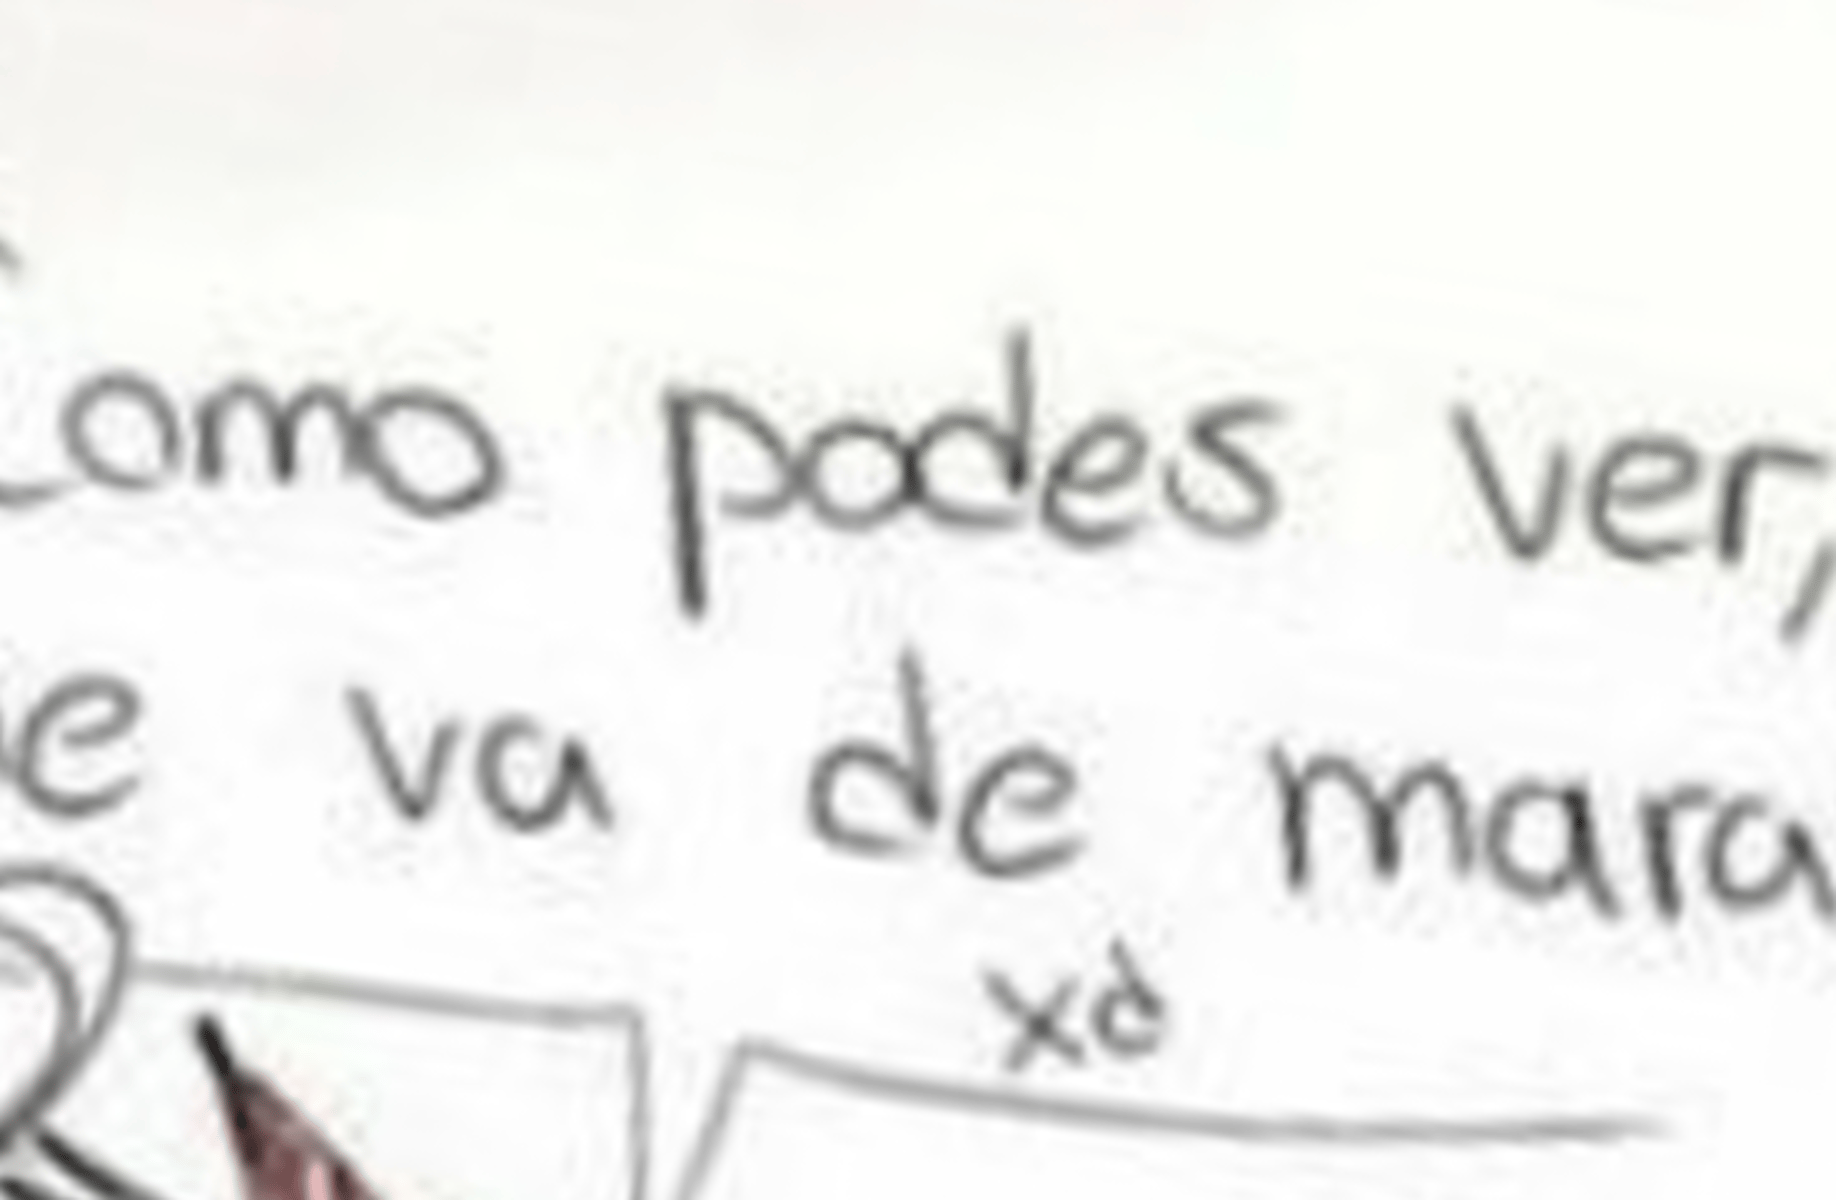 Como podes ver,
va de
xd